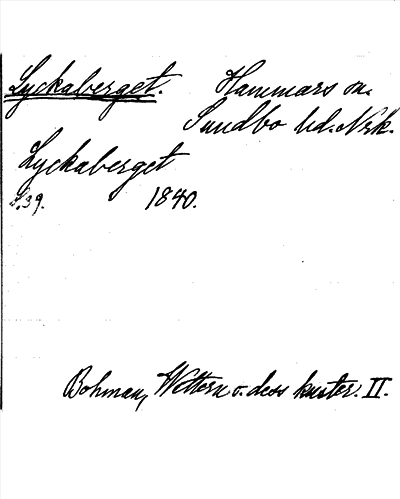 Lyckaberget. Hammars sn.
Sundbo hd. Nrk.
Lyckaberget
S. 39. 1840.
Bohman, Wettern o. dess kuster. II.